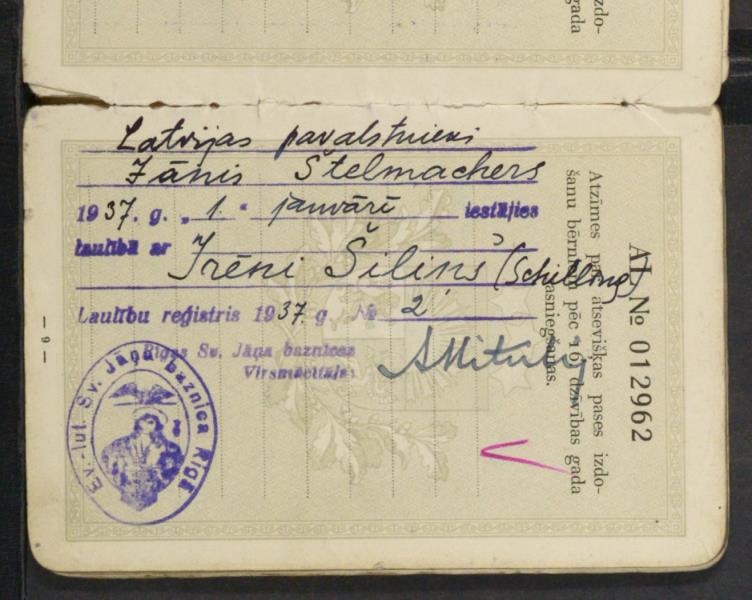 izdo-
gada
Latvijas pavalstnieks
Jānis Štelmachers
1937. g. „ 1. “ janvārī iestājies
laulībā ar Irēni Šiliņš (Schilling)
Laulību reģistris 1937. g. № 2
Rīgas Sv. Jāņa baznīcas
Virsmācītājs:
Ev.-lut. Sv. Jāņa baznīca Rīgā
Atzīmes par atsevišķas pases izdo-
šanu bērnam pēc 16 dzīvības gada
sasniegšanas.
AL № 012962
— 9 —